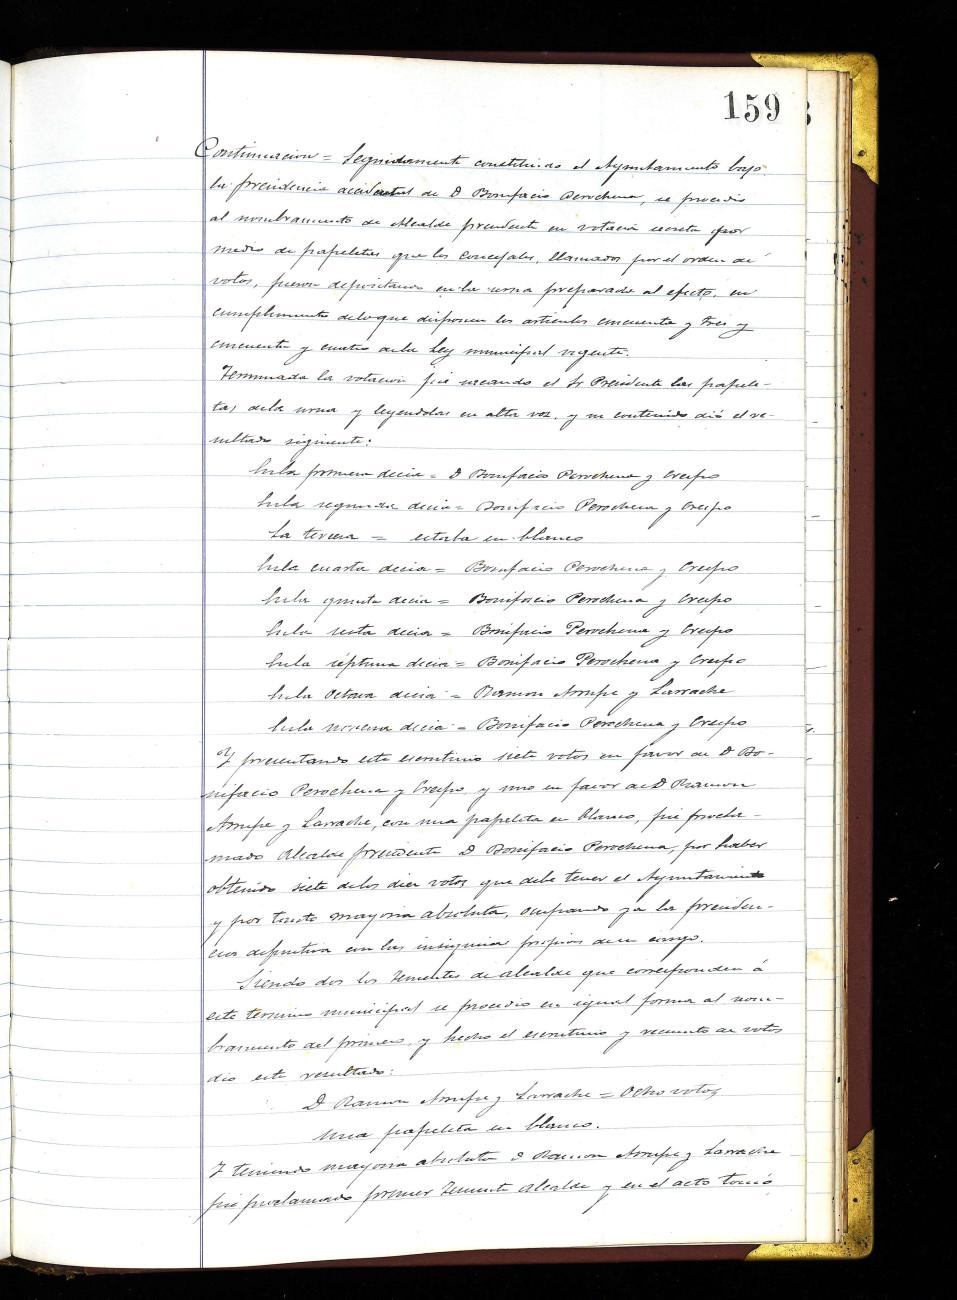 159
Continuacion = Seguidamente constituido el Ayuntamiento bajo
la presidencia accidental de D Bonifacio Perochena, se procedio
al nombramiento de Alcalde presidente en votacion secreta por
medio de papeletas que los concejales, llamados por el orden de
votos, fueron depositando en la urna preparada al efecto, en
cumplimiento de lo que disponen los articulos cincuenta y tres y
cincuenta y cuatro de la Ley municipal vigente.
Terminada la votacion fue sacando el Sr Presidente las papele-
tas de la urna y leyendolas en alta voz, y su contenido dió el re-
sultado siguiente:
En la primera decia = D Bonifacio Perochena y Crespo
En la segunda decia = Bonifacio Perochena y Crespo
La tercera = estaba en blanco
En la cuarta decia = Bonifacio Perochena y Crespo
En la quinta decia = Bonifacio Perochena y Crespo
En la sesta decia = Bonifacio Perochena y Crespo
En la séptima decia = Bonifacio Perochena y Crespo
En la Octava decia = Ramon Arrupe y Larrache
En la novena decia = Bonifacio Perochena y Crespo
Y presentando este escrutinio siete votos en favor de D Bo-
nifacio Perochena y Crespo y uno en favor de D Ramon
Arrupe y Larrache, con una papeleta en blanco, fue procla-
mado Alcalde presidente D Bonifacio Perochena, por haber
obtenido siete de los diez votos que debe tener el Ayuntamiento
y por tanto mayoria absoluta, ocupando ya la presiden-
cia definitiva con las insignias propias de su cargo.
Siendo dos los Tenientes de alcalde que corresponden á
este termino municipal se procedio en igual forma al nom-
bramiento del primero, y hecho el escrutinio y recuento de votos
dio este resultado:
D Ramon Arrupe y Larrache = Ocho votos
Una papeleta en blanco.
Y teniendo mayoria absoluta D Ramon Arrupe y Larrache
fue proclamado primer Teniente Alcalde y en el acto tomó